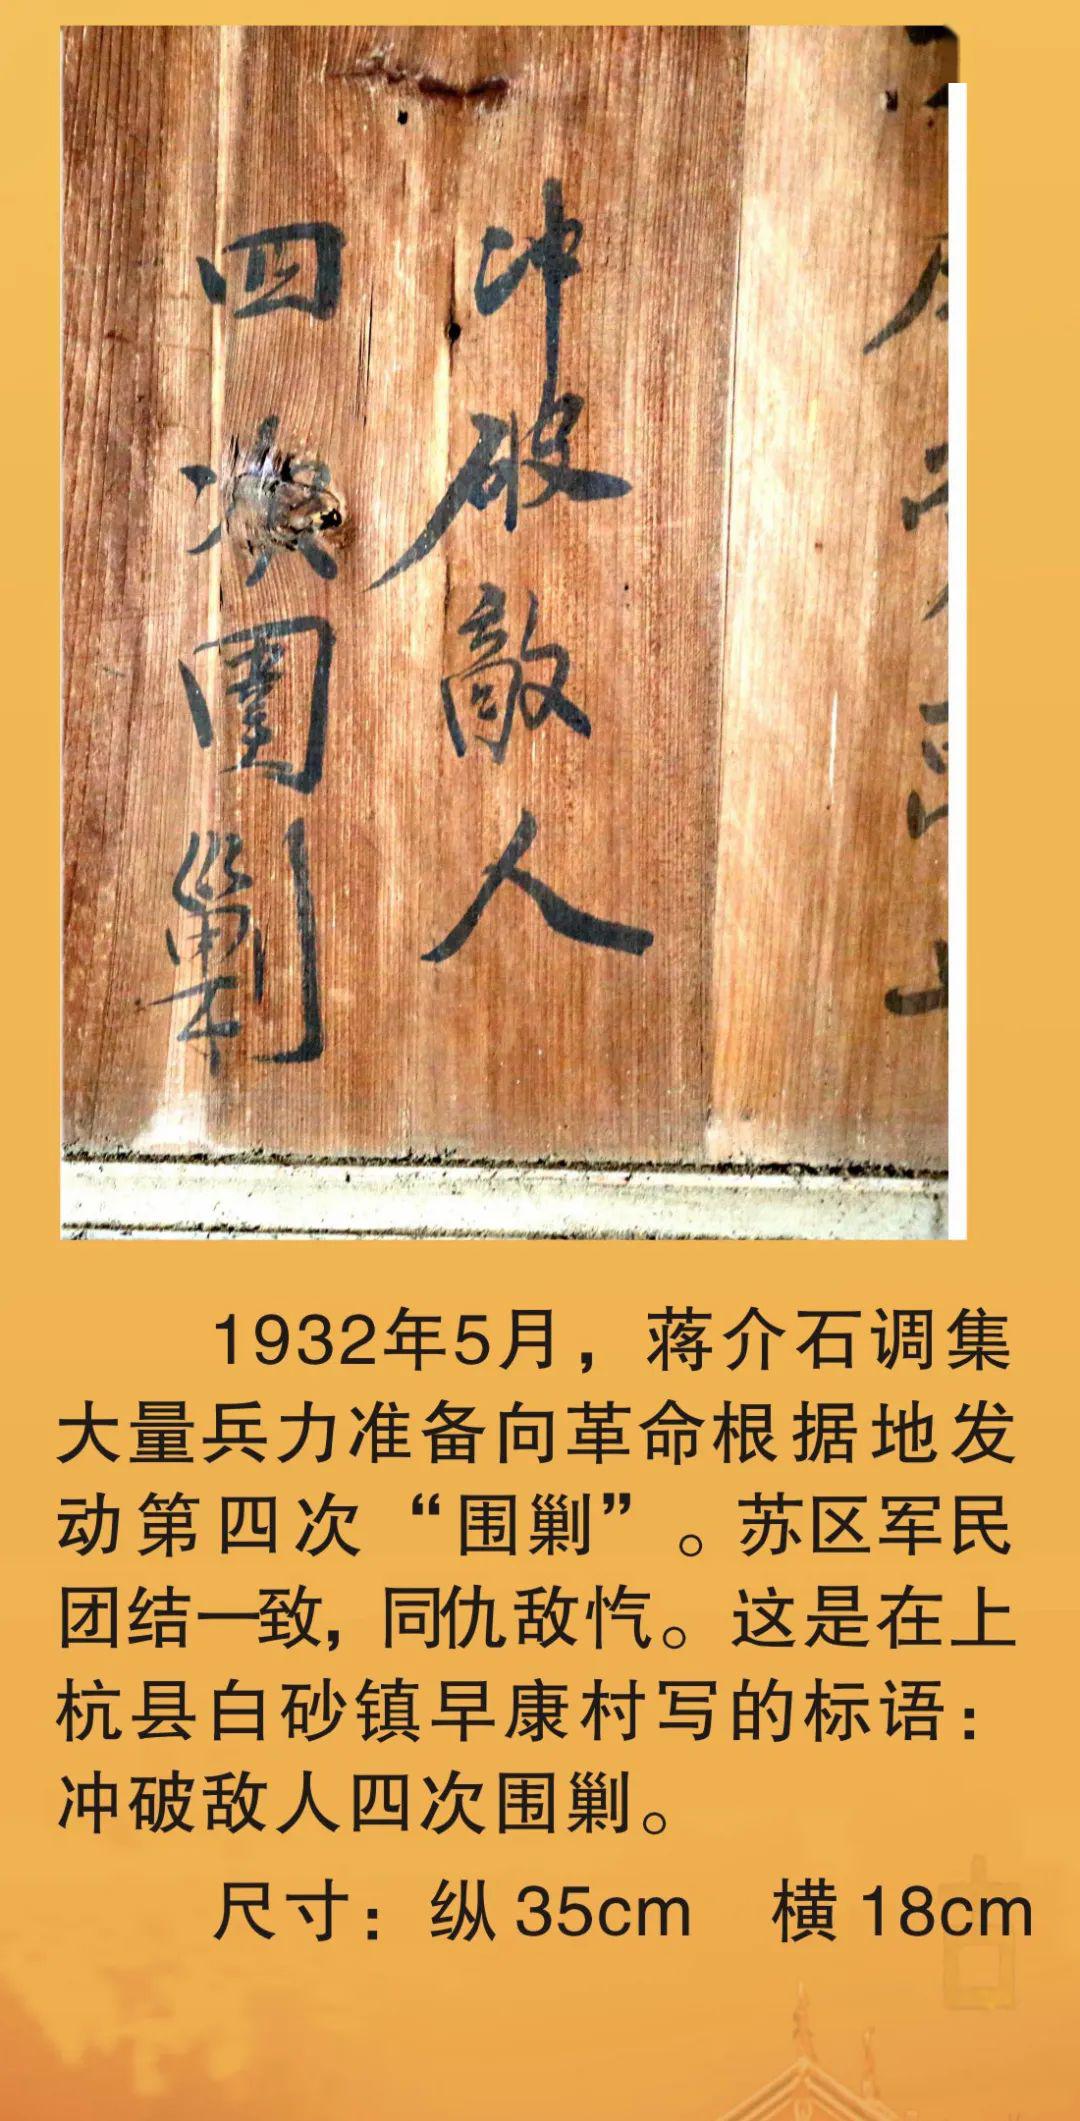 冲破敵人
四次圍剿
1932年5月，蒋介石调集
大量兵力准备向革命根据地发
动第四次“围剿”。苏区军民
团结一致，同仇敌忾。这是在上
杭县白砂镇早康村写的标语：
冲破敌人四次围剿。
尺寸：纵35cm 横18cm